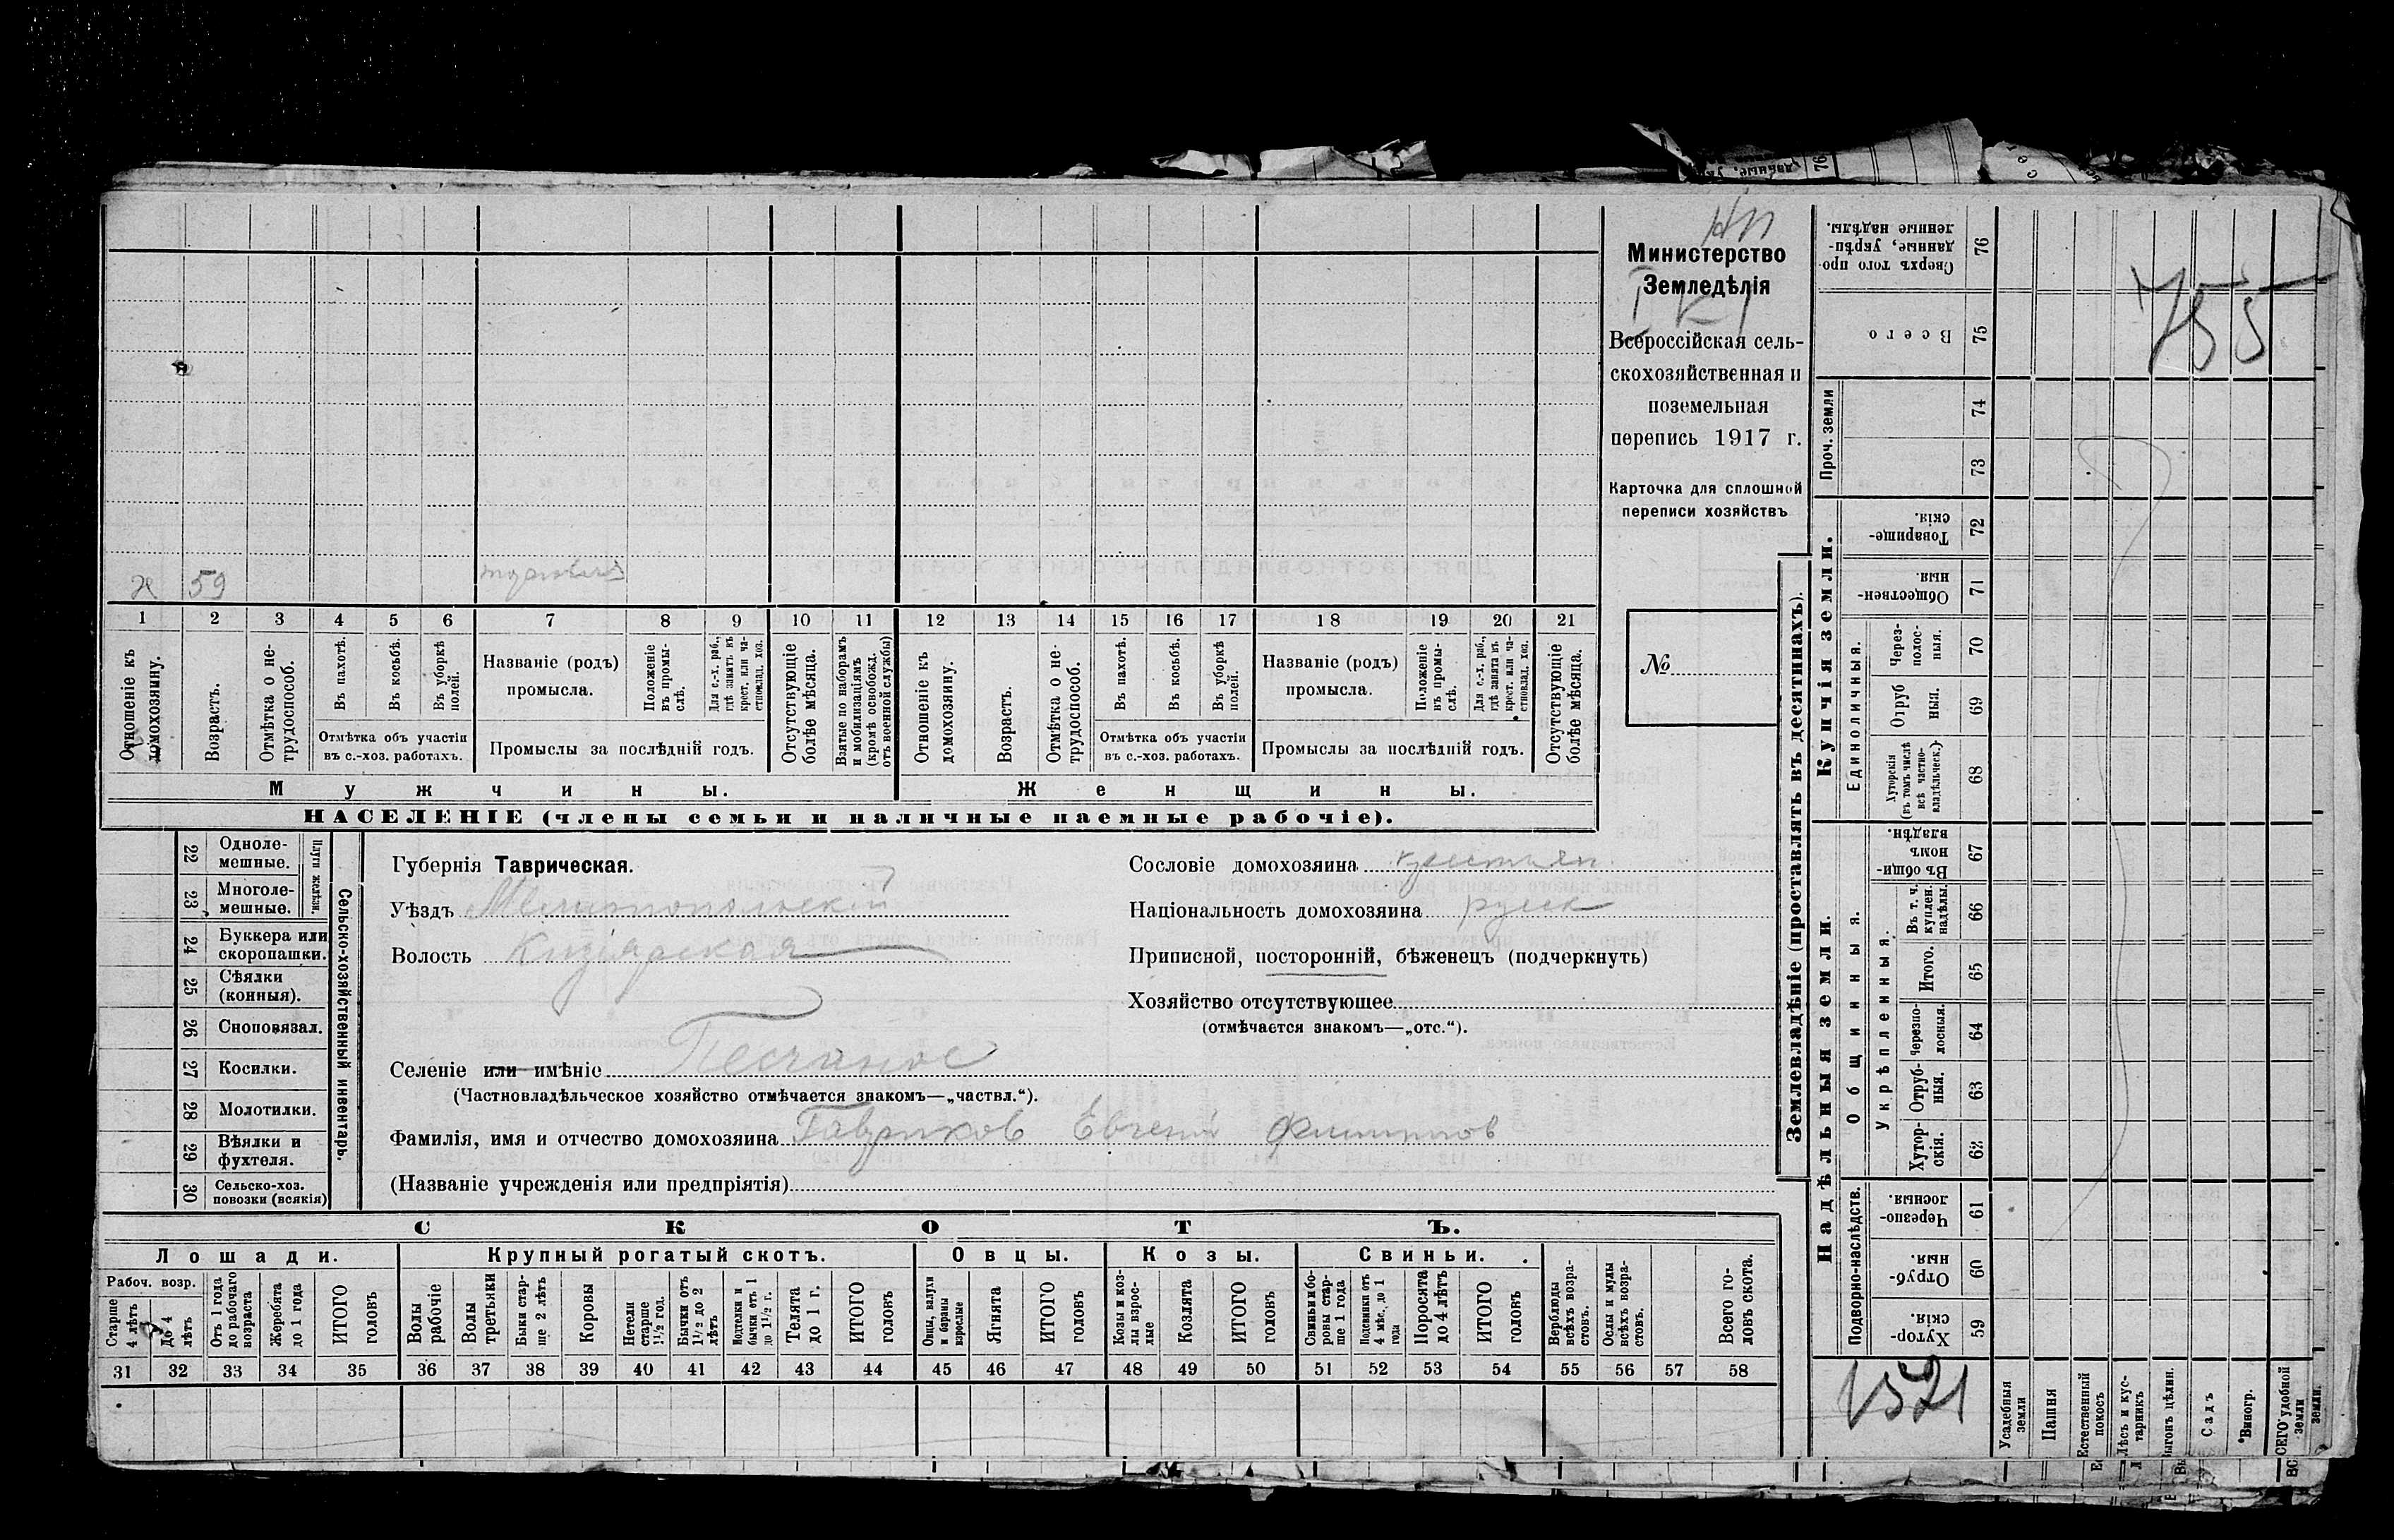 Нп
Министерство
Земледѣлія
Всероссійская сель-
скохозяйственная и
поземельная
перепись 1917 г.
Карточка для сплошной
переписи хозяйствъ
№
х 59 торговля
1 2 3 4 5 6 7 8 9 10 11 12 13 14 15 16 17 18 19 20 21
Отношеніе къ домохозяину.
Возрастъ.
Отмѣтка о не-трудоспособ.
Въ пахотѣ.
Въ косьбѣ.
Въ уборкѣ полей.
Отмѣтка объ участіи
въ с.-хоз. работахъ.
Названіе (родъ)
промысла.
Положеніе въ промы-слѣ.
Для с.-х. раб., гдѣ занятъ въ крест. или ча-стновлад. хоз.
Промыслы за послѣдній годъ.
Отсутствующіе болѣе мѣсяца.
Взятые по наборамъ и мобилизаціямъ (кромѣ освобожд. отъ военной службы)
Отношеніе къ домохозяину.
Возрастъ.
Отмѣтка о не-трудоспособ.
Въ пахотѣ.
Въ косьбѣ.
Въ уборкѣ полей.
Отмѣтка объ участіи
въ с.-хоз. работахъ.
Названіе (родъ)
промысла.
Положеніе въ промы-слѣ.
Для с.-х. раб., гдѣ занята въ крест. или ча-стновлад. хоз.
Промыслы за послѣдній годъ.
Отсутствующіе болѣе мѣсяца.
Мужчины. Женщины.
НАСЕЛЕНІЕ (члены семьи и наличные наемные рабочіе).
22 Одноле-мешные.
23 Многоле-мешные.
Плуги желѣзн.
24 Буккера или скоропашки.
25 Сѣялки (конныя).
26 Сноповязал.
27 Косилки.
28 Молотилки.
29 Вѣялки и фухтеля.
30 Сельско-хоз. повозки (всякія)
Сельско-хозяйственный инвентарь.
Губернія Таврическая.
Уѣздъ Мелитопольскій
Волость Кизіярская
Селеніе или имѣніе Песчаное
(Частновладѣльческое хозяйство отмѣчается знакомъ—„частвл.“).
Фамилія, имя и отчество домохозяина Гавриков Евгений Филиппов
(Названіе учрежденія или предпріятія)
Сословіе домохозяина крестьян.
Національность домохозяина русск
Приписной, посторонній, бѣженецъ (подчеркнуть)
Хозяйство отсутствующее
(отмѣчается знакомъ—„отс.“).
СКОТЪ.
Лошади. Крупный рогатый скотъ. Овцы. Козы. Свиньи.
Рабоч. возр.
Старше 4 лѣтъ
До 4 лѣтъ
Отъ 1 года до рабочаго возраста
Жеребята до 1 года
ИТОГО головъ
Волы рабочіе
Волы третьяки
Быки стар-ше 2 лѣтъ
Коровы
Нетели старше 1½ год.
Бычки отъ 1½ до 2 лѣтъ
Подтелки и бычки отъ 1 до 1½ г.
Телята до 1 г.
ИТОГО головъ
Овцы, валухи и бараны взрослые
Ягнята
ИТОГО головъ
Козы и коз-лы взрос-лые
Козлята
ИТОГО головъ
Свиньи и бо-ровы стар-ше 1 года
Подсвинки отъ 4 мѣс. до 1 года
Поросята до 4 лѣтъ
ИТОГО головъ
Верблюды всѣхъ возра-стовъ.
Ослы и мулы всѣхъ возра-стовъ.
Всего го-ловъ скота.
31 32 33 34 35 36 37 38 39 40 41 42 43 44 45 46 47 48 49 50 51 52 53 54 55 56 57 58
Землевладѣніе (проставлять въ десятинахъ).
755
Сверхъ того про-данные, укрѣп-ленные надѣлы. 76
Всего 75
Проч. земли
74
73
Купчія земли.
Товарище-скія. 72
Обществен-ныя. 71
Единоличныя.
Через-полос-ныя. 70
Отруб ныя. 69
Хуторскія (въ томъ числѣ всѣ частно-владѣльческ.). 68
Надѣльныя земли.
Общинныя.
Въ общи-номъ владѣн. 67
Укрѣпленныя.
Въ т. ч. куплен. надѣлы. 66
Итого. 65
Черезпо-лосныя. 64
Отруб-ныя. 63
Хутор-скія. 62
Подворно-наслѣдств.
Черезпо-лосныя. 61
Отруб-ныя. 60
Хутор-скія. 59
1521
Усадебныя земли
Пашня
Естественный покосъ
Лѣсъ и кус-тарникъ
Выгонъ цѣлин.
Садъ
Виногр.
ВСЕГО удобной земли